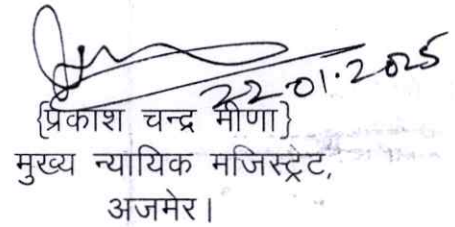 22.01.2025
{प्रकाश चन्द्र मीणा}
मुख्य न्यायिक मजिस्ट्रेट,
अजमेर।